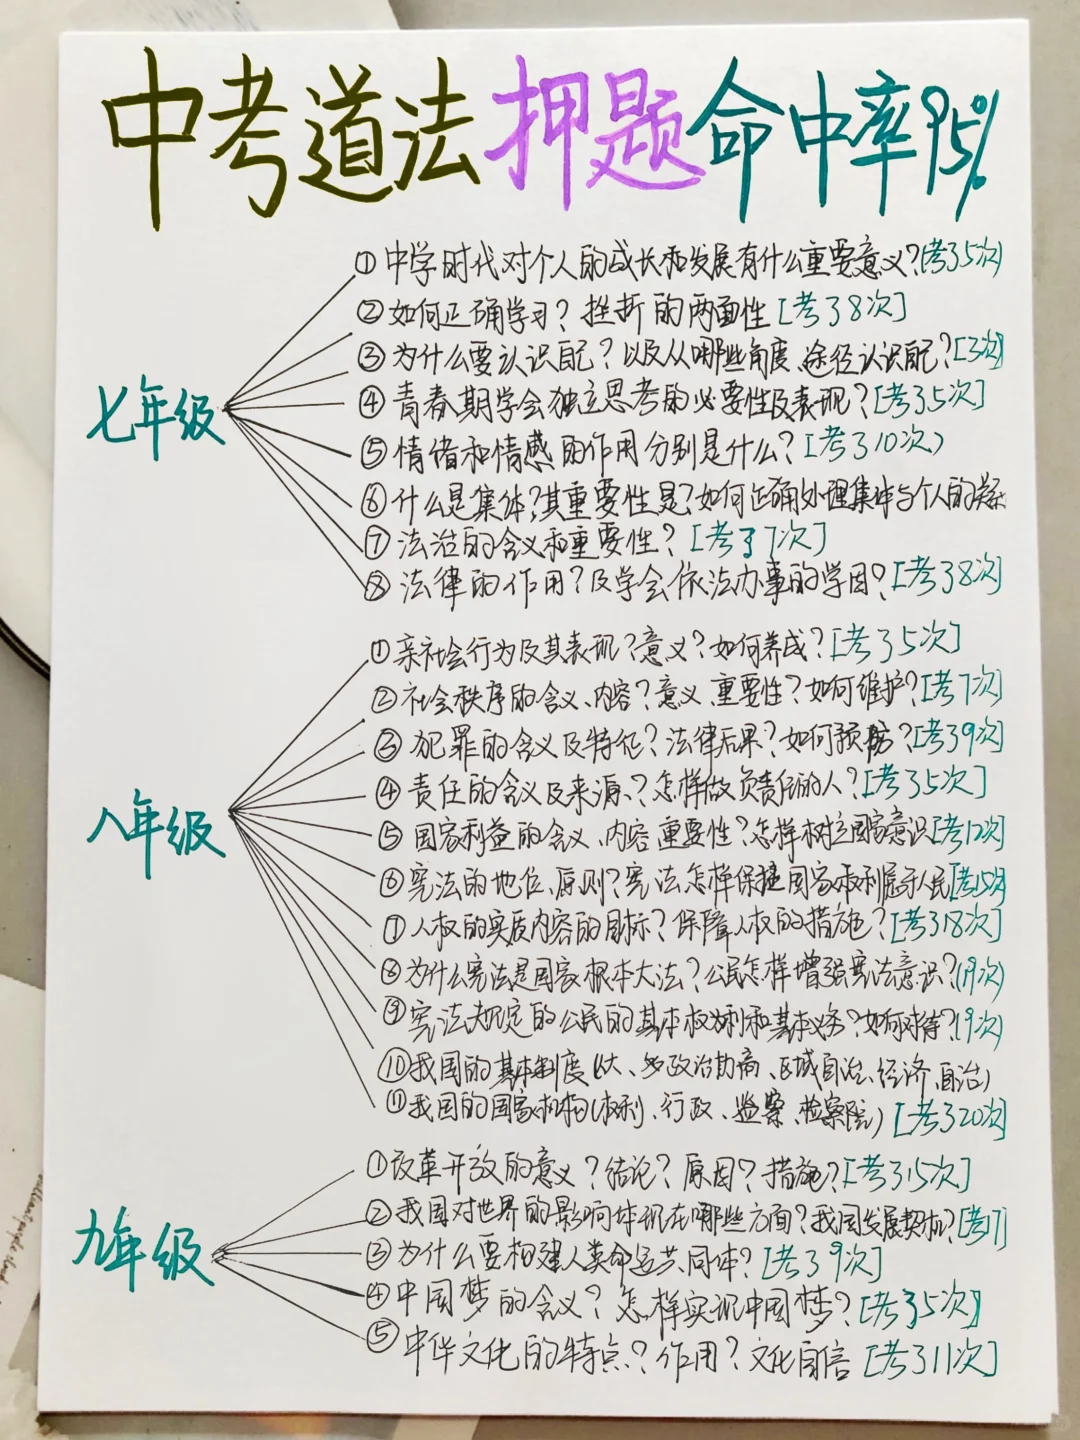 中考道法押题命中率95%
七年级
①中学时代对个人的成长和发展有什么重要意义?(考了5次)
②如何正确学习?挫折的两面性[考了8次]
③为什么要认识自己?以及从哪些角度、途径认识自己?[3次]
④青春期学会独立思考的必要性及表现?[考了5次]
⑤情绪和情感的作用分别是什么?[考了10次]
⑥什么是集体?其重要性是?如何正确处理集体与个人的关系
⑦法治的含义和重要性?[考了7次]
⑧法律的作用?及学会依法办事的学因?[考了8次]
八年级
①亲社会行为及其表现?意义?如何养成?[考了5次]
②社会秩序的含义、内容?意义、重要性?如何维护?[考7次]
③犯罪的含义及特征?法律后果?如何预防?[考了9次]
④责任的含义及来源?怎样做负责任的人?[考了5次]
⑤国家利益的含义、内容、重要性?怎样树立国家意识[考12次]
⑥宪法的地位、原则?宪法怎样保障国家权利属于人民[考15次]
⑦人权的实质内容的目标?保障人权的措施?[考了18次]
⑧为什么宪法是国家根本大法?公民怎样增强宪法意识?(19次)
⑨宪法规定的公民的基本权利和基本义务?如何对待?(9次)
⑩我国的基本制度(人大、多政治协商、区域自治、经济、自治)
⑪我国的国家机构(权利、行政、监察、检察院)[考了20次]
九年级
①改革开放的意义?结论?原因?措施?[考了15次]
②我国对世界的影响体现在哪些方面?我国发展契机?[考17]
③为什么要构建人类命运共同体?[考了9次]
④中国梦的含义?怎样实现中国梦?[考了5次]
⑤中华文化的特点?作用?文化自信[考了11次]